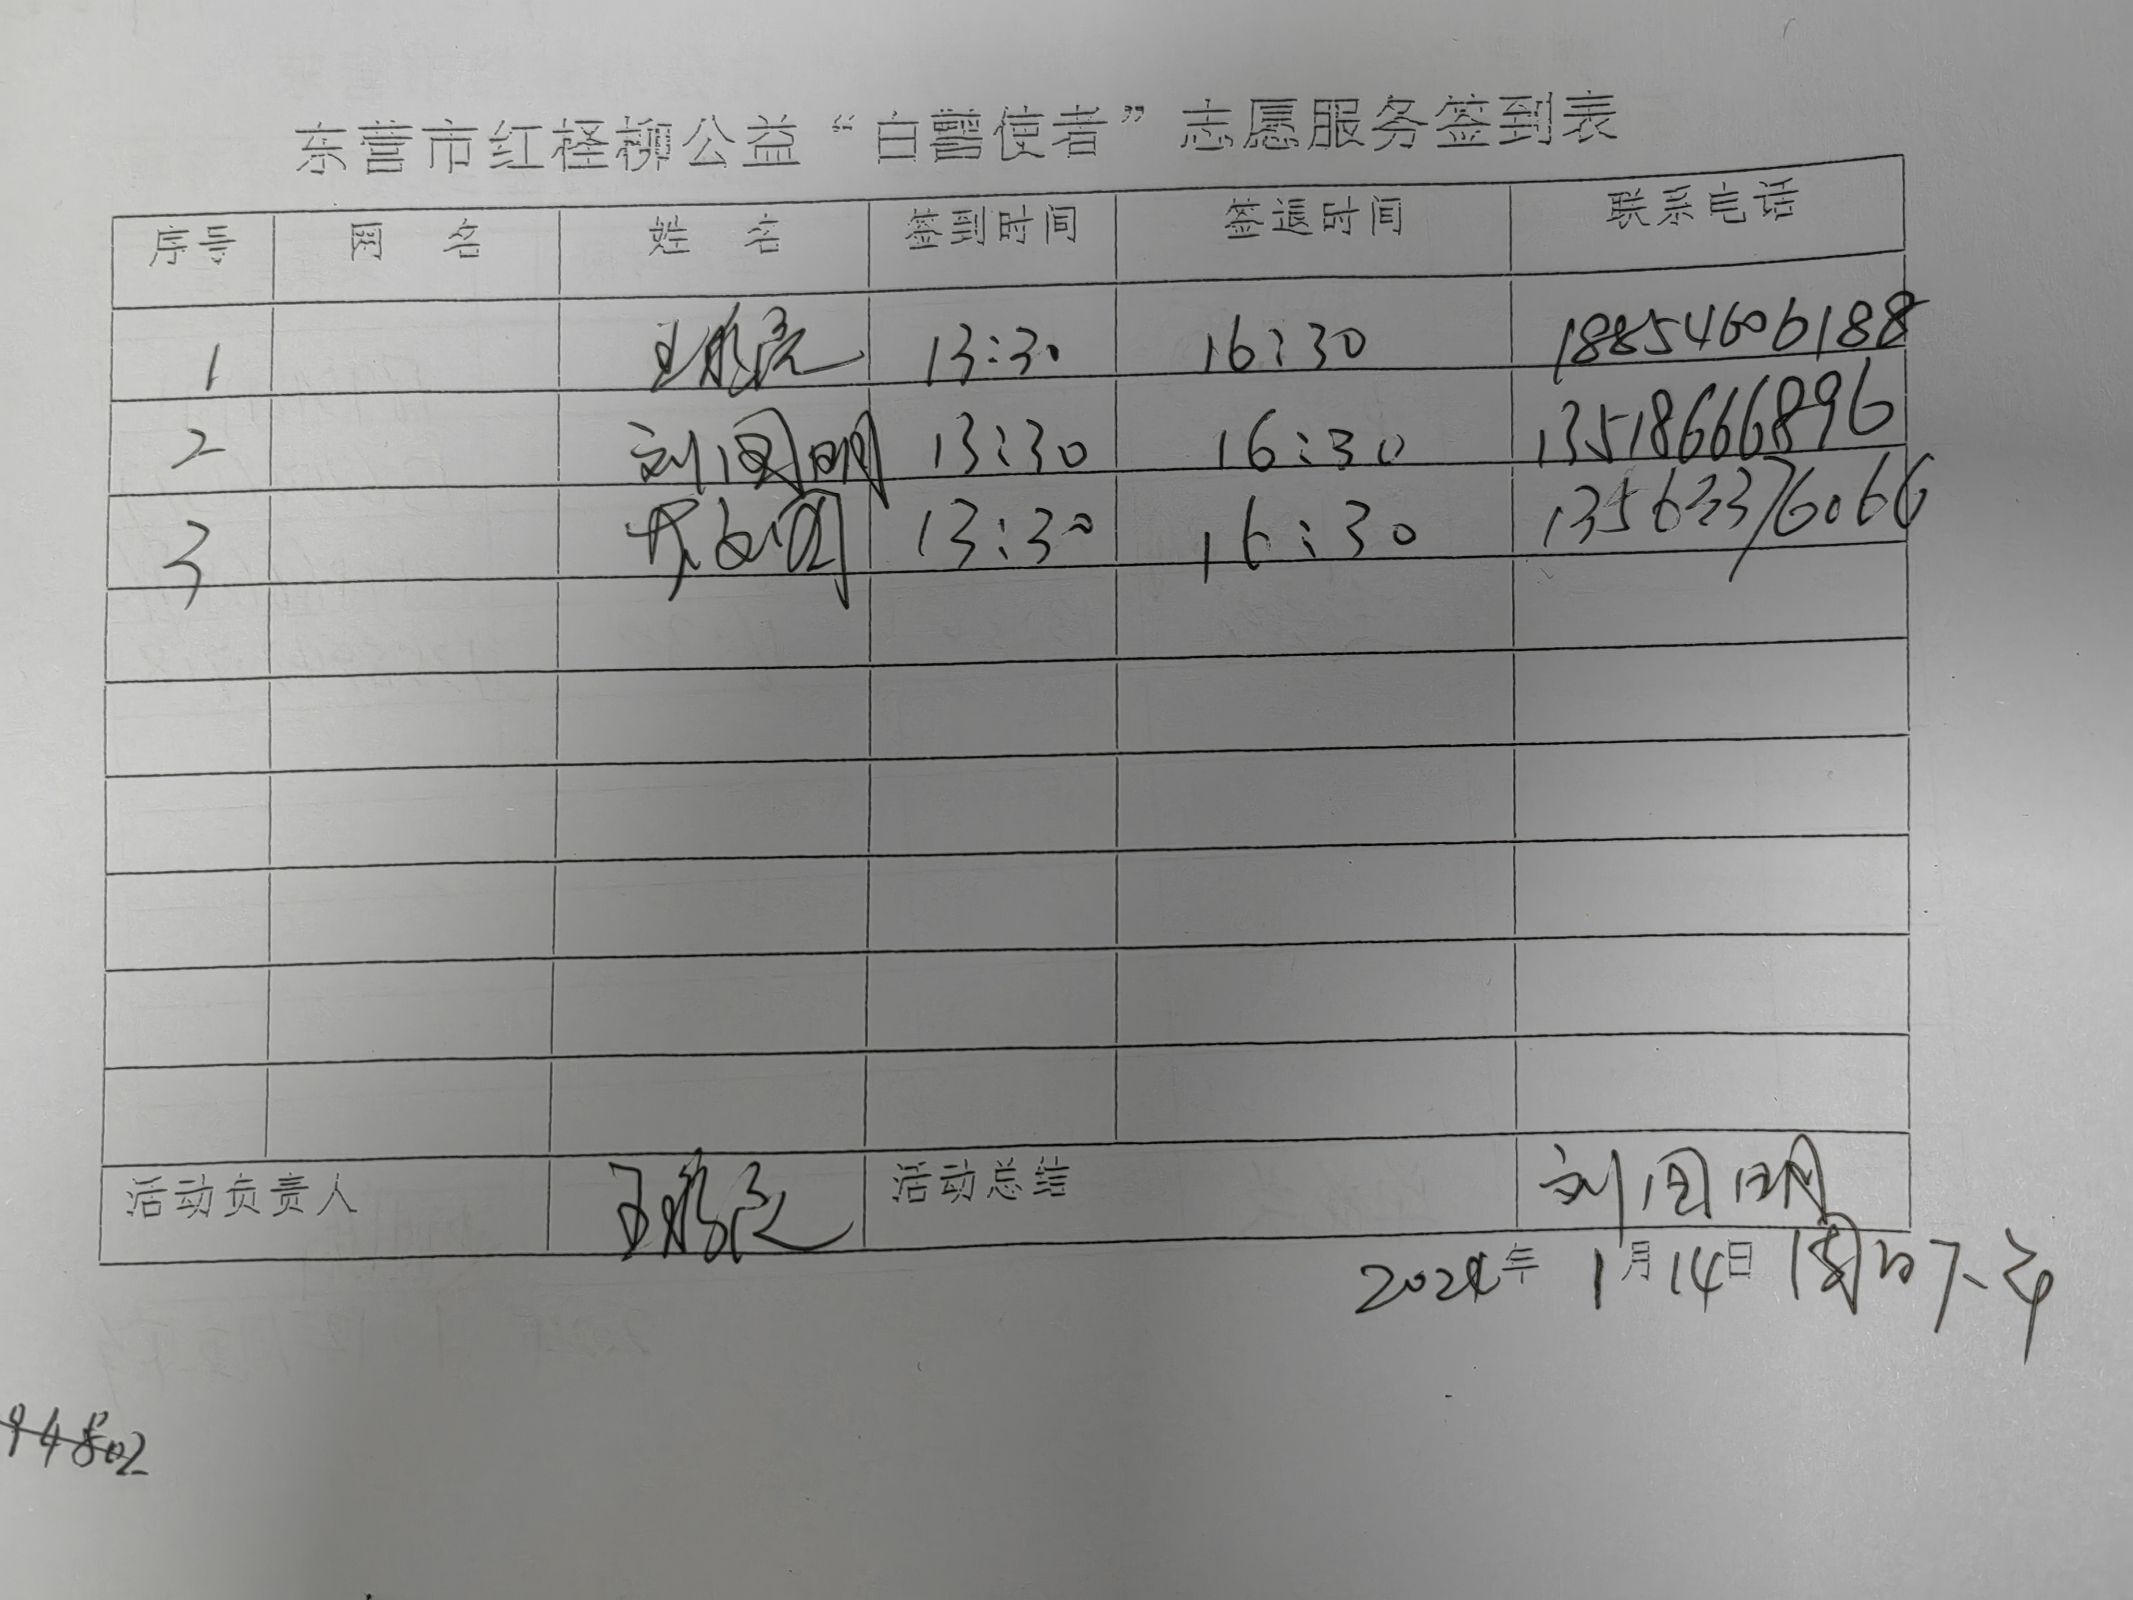 东营市红柽柳公益“白鹭使者”志愿服务签到表
序号 网 名 姓 名 签到时间 签退时间 联系电话
1 王鹏亮 13:30 16:30 18854606188
2 刘国明 13:30 16:30 13518666896
3 13:30 16:30 13562376066
活动负责人 王鹏亮 活动总结 刘国明
2024年 1月14日 周日下午